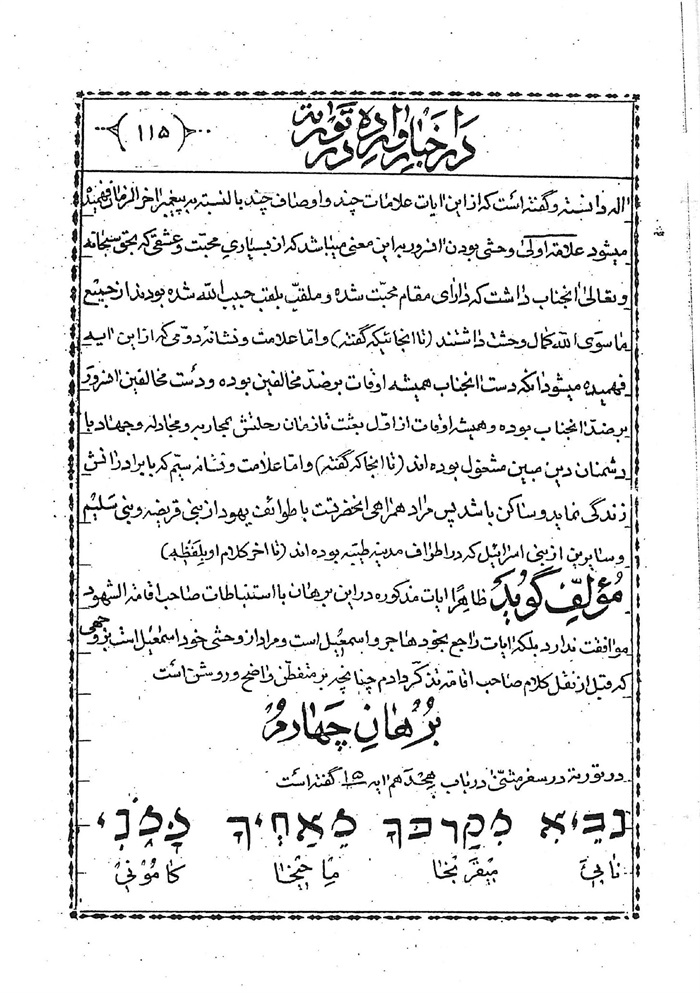 در اخبار وارده در توریة
(۱۱۵)
اله دانسته و گفته است که از این ایات علامات چند و اوصاف چند بالنسبة به پیغمبر اخرالزمان فهمیده
میشود علاقه اولی وحشی بودن انسرور به این معنی میباشد که از بسیاری محبت و عشقی که بحق سبحانه
و تعالی انجناب داشت که دارای مقام محبت شده و ملقب بلقب حبیب الله شده بودند از جمیع
ما سوی الله کمال وحشت داشتند (تا انجائیکه گفته) و اما علامت و نشانه دومی که از این ایه
فهمیده میشود انکه دست انجناب همیشه اوقات بر ضد مخالفین بوده و دست مخالفین انسرور
بر ضد انجناب بوده و همیشه اوقات از اول بعثت تا زمان رحلتش بمحاربه و مجادله و جهاد با
دشمنان دین مبین مشغول بوده اند (تا انجا که گفته) و اما علامت و نشانه سیم که با برادرانش
زندگی نماید و ساکن باشد پس مراد همراهی انحضرتست با طوائف یهود از بنی قریضه و بنی سلیم
و سایرین از بنی اسرائیل که در اطراف مدینه طیبه بوده اند (تا اخر کلام او بلفظه)
مؤلف گوید ظاهرا ایات مذکوره در این برهان با استنباطات صاحب اقامة الشهود
موافقت ندارد بلکه ایات راجع بخود هاجر و اسمعیل است و مراد از وحشی خود اسمعیل است بر وجهی
که قبل از نقل کلام صاحب اقامه تذکر دادم چنانچه بر متفطن واضح و روشن است
برهان چهارم
در توریة در سفر مثنی در باب هجدهم ایه ۱۵ گفته است
נָבִיא מִקִרבְּךָ מֵאַחֶיךָ כָּמֹנִי
نابیء میقربخا ماحیخا کامونی